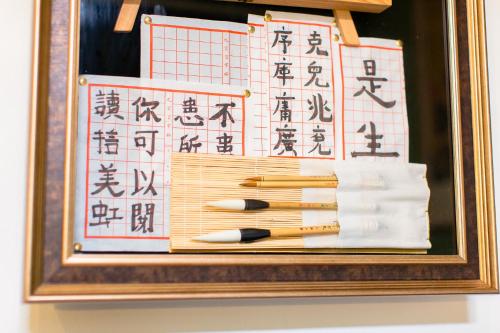 是生
克兕兆兗
序库庸廣
不事
患所
你可以閱
讀
美虹